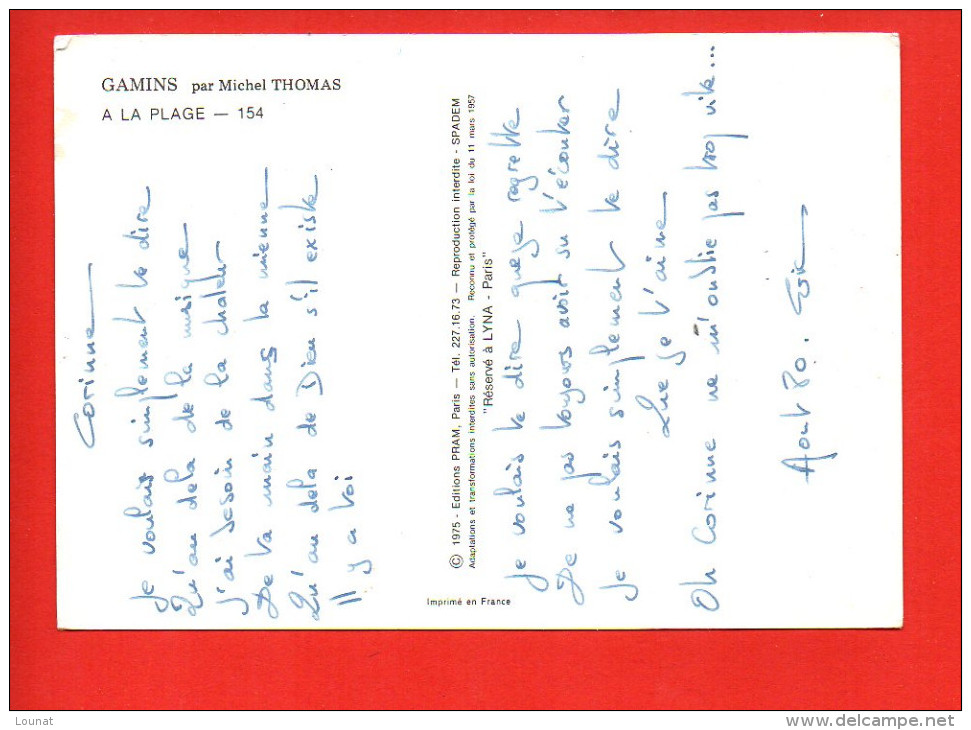 GAMINS par Michel THOMAS
A LA PLAGE — 154
Corinne
Je voulais simplement te dire
Qu'au dela de la musique
J'ai besoin de la chaleur
De ta main dans la mienne
Qu'au dela de Dieu s'il existe
Il y a toi
© 1975 - Editions PRAM, Paris — Tél. 227.16.73 — Reproduction interdite - SPADEM
Adaptations et transformations interdites sans autorisation. Reconnu et protégé par la loi du 11 mars 1957
"Réservé à LYNA - Paris"
Imprimé en France
Je voulais te dire que je regrette
De ne pas toujours avoir su t'écouter
Je voulais simplement te dire
Que je t'aime
Oh Corinne ne m'oublie pas trop vite...
Aout 80.
Lounat
www.delcampe.net